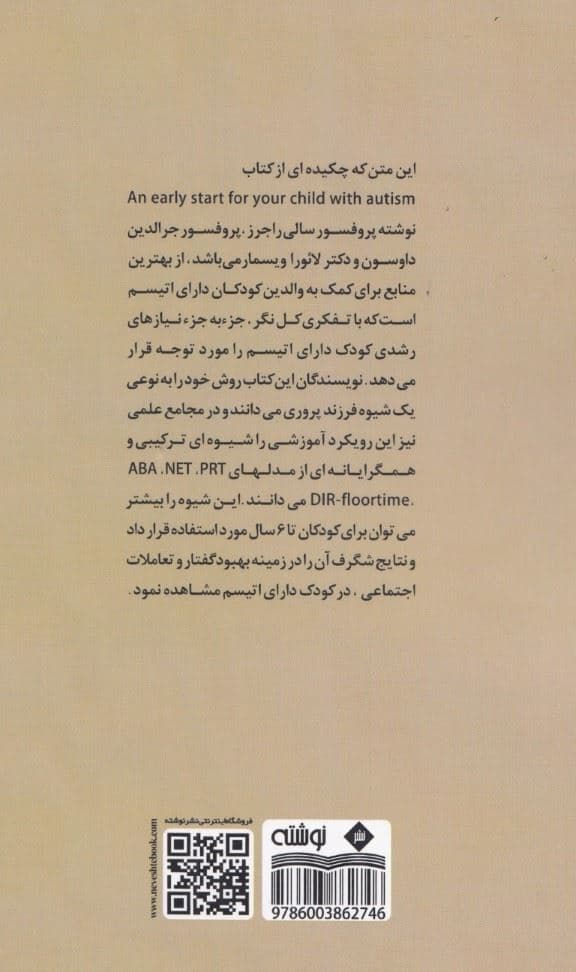 این متن که چکیده ای از کتاب
An early start for your child with autism
نوشته پروفسور سالی راجرز ، پروفسور جرالدین
داوسون و دکتر لائورا ویسمار می باشد ، از بهترین
منابع برای کمک به والدین کودکان دارای اتیسم
است که با تفکری کل نگر ، جزء به جزء نیازهای
رشدی کودک دارای اتیسم را مورد توجه قرار
می دهد . نویسندگان این کتاب روش خود را به نوعی
یک شیوه فرزند پروری می دانند و در مجامع علمی
نیز این رویکرد آموزشی را شیوه ای ترکیبی و
همگرایانه ای از مدلهای ABA ،NET ،PRT
،DIR-floortime می دانند . این شیوه را بیشتر
می توان برای کودکان تا ۶ سال مورد استفاده قرار داد
و نتایج شگرف آن را در زمینه بهبود گفتار و تعاملات
اجتماعی ، در کودک دارای اتیسم مشاهده نمود .
فروشگاه اینترنتی نشر نوشته
www.neveshtebook.com
نشر نوشته
9786003862746